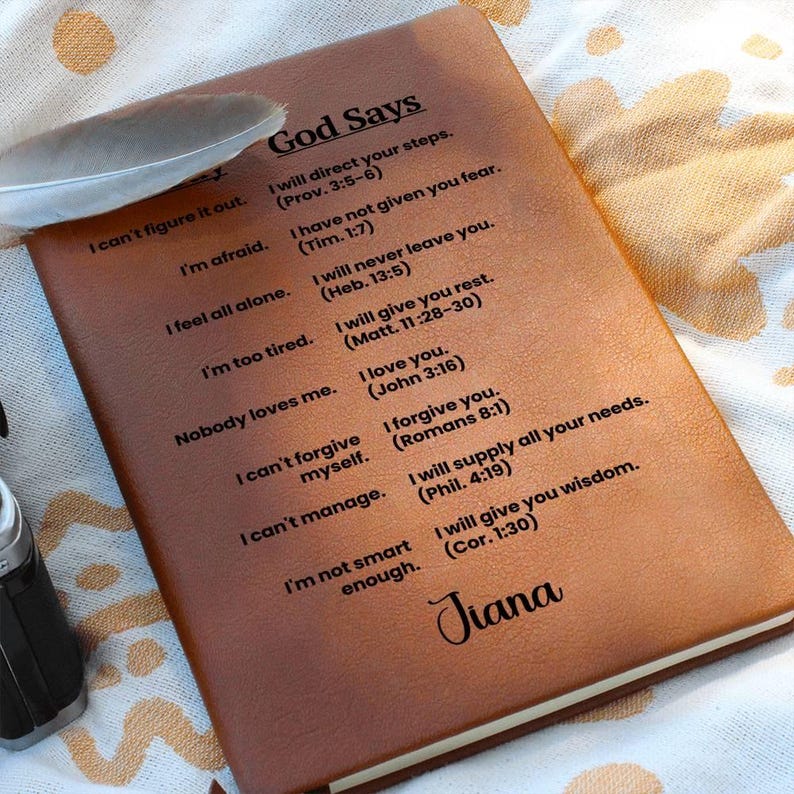 God Says
I can't figure it out.
I will direct your steps.
(Prov. 3:5–6)
I'm afraid.
I have not given you fear.
(Tim. 1:7)
I feel all alone.
I will never leave you.
(Heb. 13:5)
I'm too tired.
I will give you rest.
(Matt. 11 :28–30)
Nobody loves me.
I love you.
(John 3:16)
I can't forgive
myself.
I forgive you.
(Romans 8:1)
I can't manage.
I will supply all your needs.
(Phil. 4:19)
I'm not smart
enough.
I will give you wisdom.
(Cor. 1:30)
Jiana